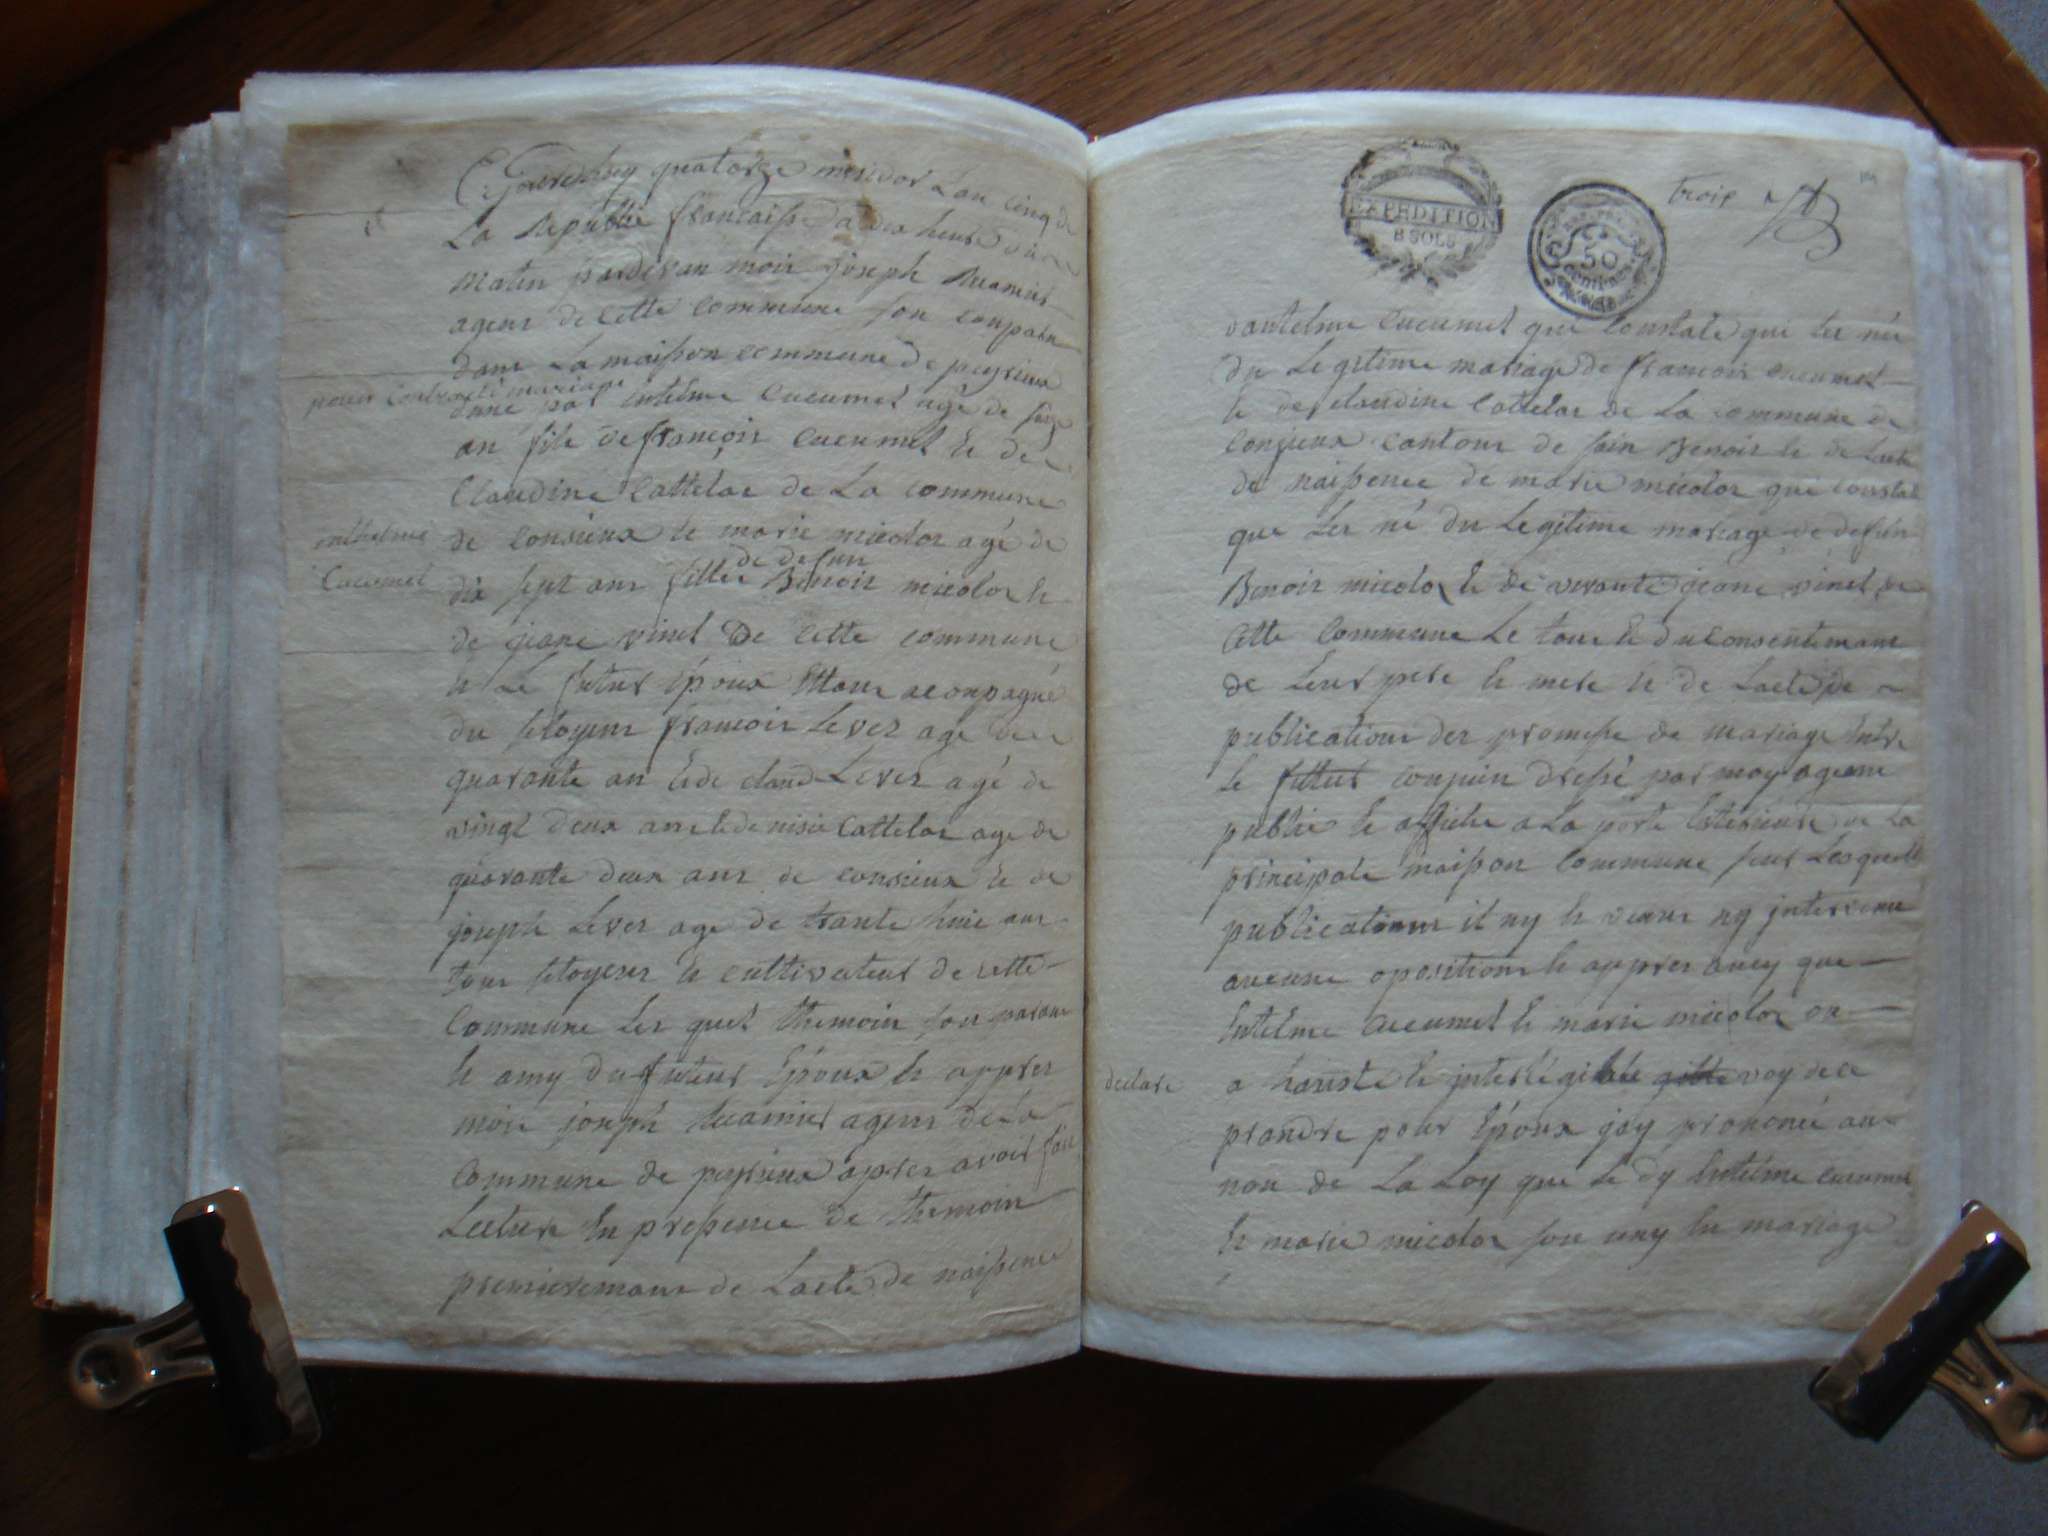 Ejourdhuy quatorze mesidor Lan cinq de
La Republie francaisse a dix heure du
matin pardevan moir joseph
agent de cette commune son conparu
dans La maisson commune de peyrieux
pour contracté mariage
dune par Entelme Cucumel agé de seize
an fils de françois Cucumel Et de
Claudine Cattelar de La commune
de consieux Et marie micolor agé de
de defun
dix sept ans fille Benoir micolor Et
de jeane vinet De Cette commune
Et Le futur Epoux Ettan aconpagné
du sitoyens francois Lever agé de
quarante an Et de claud Lever agé de
vingt deux ans Et de Cattelar age de
quarante deux ans de consieux Et de
joseph Lever age de trante huit ans
tous sitoyens Et cultivateur de cette
Commune Les quel themoin son paran
Et amy du futeur Epoux Et apprer
moir joseph agent de La
commune de peyrieux aprer avoir fait
Lecture En pressence de themoin
premieremant de Lacte de naissence
anthelme
Cucumel
EXPEDITION
8 SOLS
50
centimes
trois
dantelme Cucumel qui constate qui Est né
du Legitime mariage de francoir cucumel
Et de claudine Cattelar de La commune de
consieux cantour de sain Benoir Et de Lacte
de naissence de marie micolor qui constate
que Les né du Legitime mariage de defun
Benoir micolor Et de vivante jeane vinet de
Cette Commune Le tour Et du consentemant
de Leur pere Et mere Et de Lacte de
publications der promesse de mariage Entre
Le futur conjoin dressé par moy agent
public Et affiche a La porte Exterieure de La
principale maisson Commune sur Lesquelle
publications il ny Et venus ny jntervenu
aucune opositions Et apprer avoy que
Entelme Cucumel Et marie micolor on
declare
a hauste Et jntelégible voy de ce
prandre pour Epoux jay prononcé au
non de La Loy que Le dy Entelme cucumel
Et marie micolor son uny En mariage